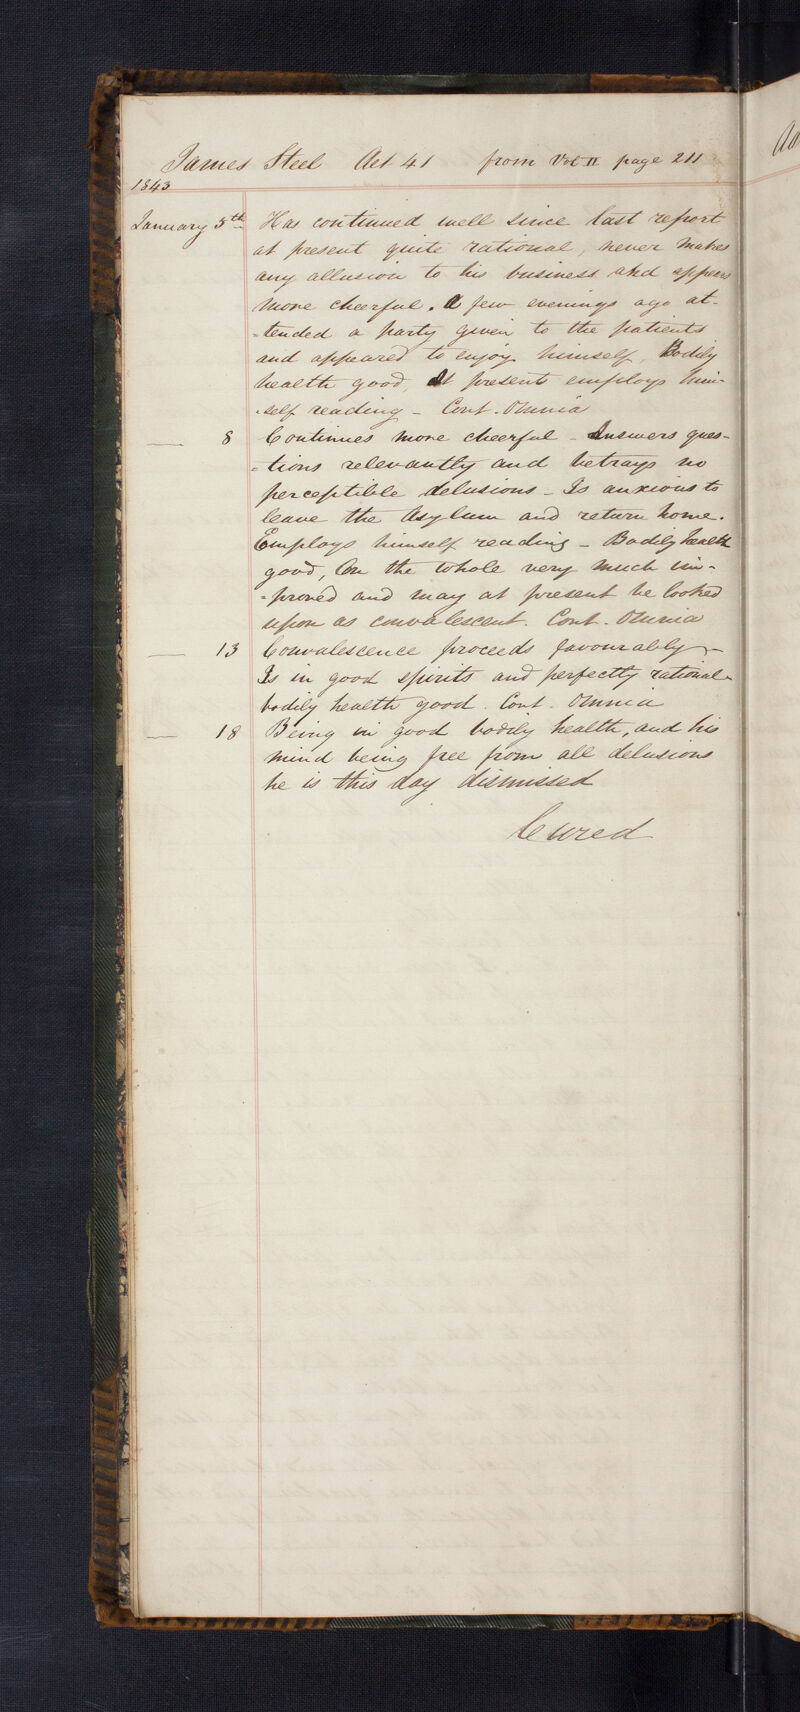 James Steel Aet 41 from Vol II page 211
1843
January 5th Has continued well since last report
at present quite rational, never makes
any allusion to his business and appears
more cheerful. A few evenings ago at-
-tended a party given to the patients
and appeared to enjoy himself, Bodily
health good, At present employs him-
-self reading - Cont. Omnia
— 8 Continues more cheerful - Answers ques-
-tions relevantly and betrays no
perceptible delusions - Is anxious to
leave the Asylum and return home.
Employs himself reading - Bodily health
good, On the whole very much im-
-proved and may at present be looked
upon as convalescent. Cont. Omnia
— 13 Convalescence proceeds favourably -
Is in good spirits and perfectly rational -
bodily health good. Cont. Omnia
— 18 Being in good bodily health, and his
mind being free from all delusions
he is this day dismissed
Cured